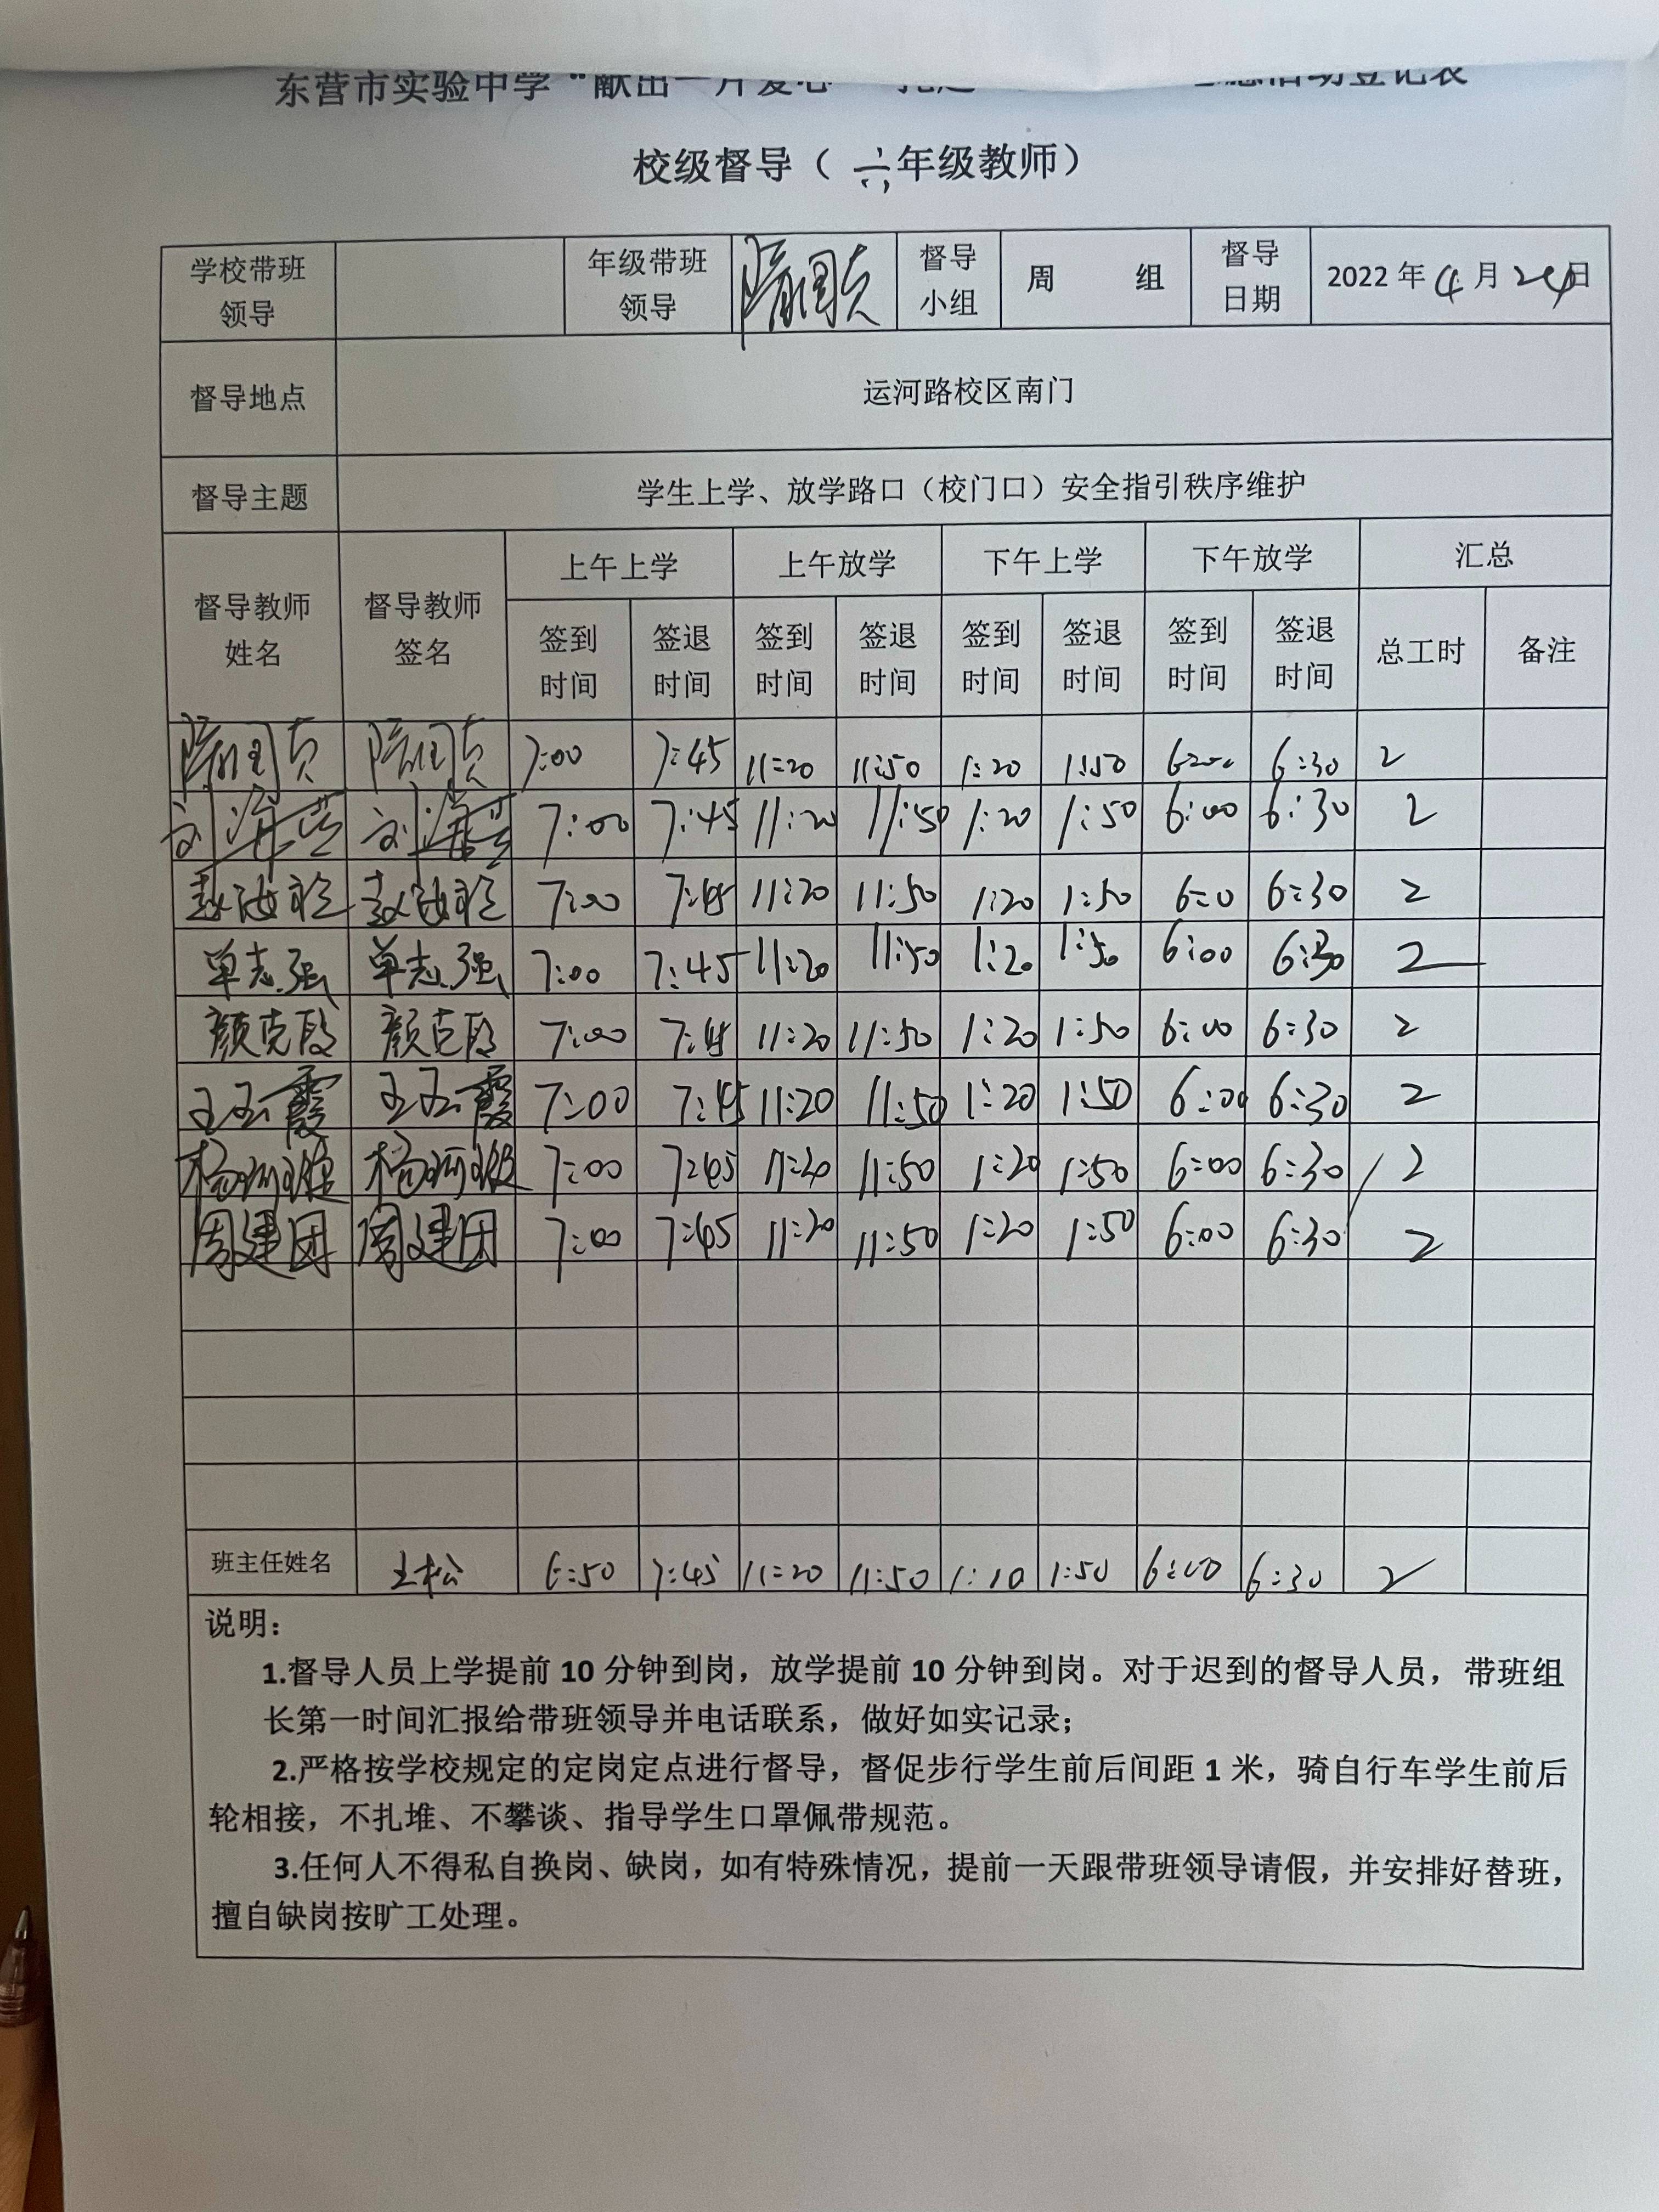 东营市实验中学“献出一片爱心
活动登记表
校级督导（ 六年级教师）
学校带班领导 年级带班领导 隋国贞 督导小组 周 组 督导日期 2022 年 4 月 24 日
督导地点 运河路校区南门
督导主题 学生上学、放学路口（校门口）安全指引秩序维护
督导教师姓名 督导教师签名 上午上学 上午放学 下午上学 下午放学 汇总
签到时间 签退时间 签到时间 签退时间 签到时间 签退时间 签到时间 签退时间 总工时 备注
隋国贞 隋国贞 7:00 7:45 11:20 11:50 1:20 1:50 6:00 6:30 2
刘海英 刘海英 7:00 7:45 11:20 11:50 1:20 1:50 6:00 6:30 2
7:00 7:45 11:20 11:50 1:20 1:50 6:00 6:30 2
单志强 单志强 7:00 7:45 11:20 11:50 1:20 1:50 6:00 6:30 2
颜克 颜克 7:00 7:45 11:20 11:50 1:20 1:50 6:00 6:30 2
王玉霞 王玉霞 7:00 7:45 11:20 11:50 1:20 1:50 6:00 6:30 2
杨 杨 7:00 7:45 11:20 11:50 1:20 1:50 6:00 6:30 2
周建团 周建团 7:00 7:45 11:20 11:50 1:20 1:50 6:00 6:30 2
班主任姓名 王松 6:50 7:45 11:20 11:50 1:10 1:50 6:00 6:30 2
说明：
1.督导人员上学提前 10 分钟到岗，放学提前 10 分钟到岗。对于迟到的督导人员，带班组
长第一时间汇报给带班领导并电话联系，做好如实记录；
2.严格按学校规定的定岗定点进行督导，督促步行学生前后间距 1 米，骑自行车学生前后
轮相接，不扎堆、不攀谈、指导学生口罩佩带规范。
3.任何人不得私自换岗、缺岗，如有特殊情况，提前一天跟带班领导请假，并安排好替班，
擅自缺岗按旷工处理。